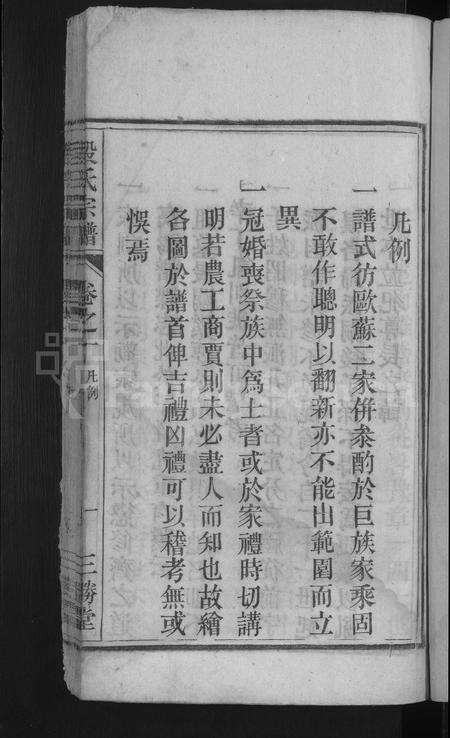 凡例
一譜式彷歐蘇二家併叅酌於巨族家乘固
不敢作聰明以翻新亦不能出範圍而立
異
一冠婚喪祭族中爲士者或於家禮時切講
明若農工商賈則未必盡人而知也故繪
各圖於譜首俾吉禮凶禮可以稽考無或
悞焉
段氏宗譜
卷之一
凡例
一
三勝堂